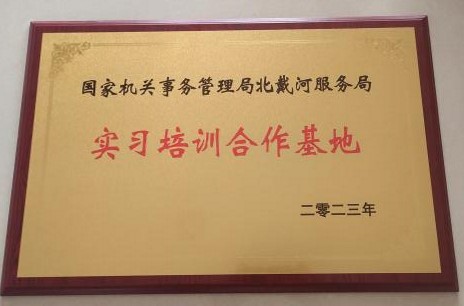 国家机关事务管理局北戴河服务局
实习培训合作基地
二零二三年